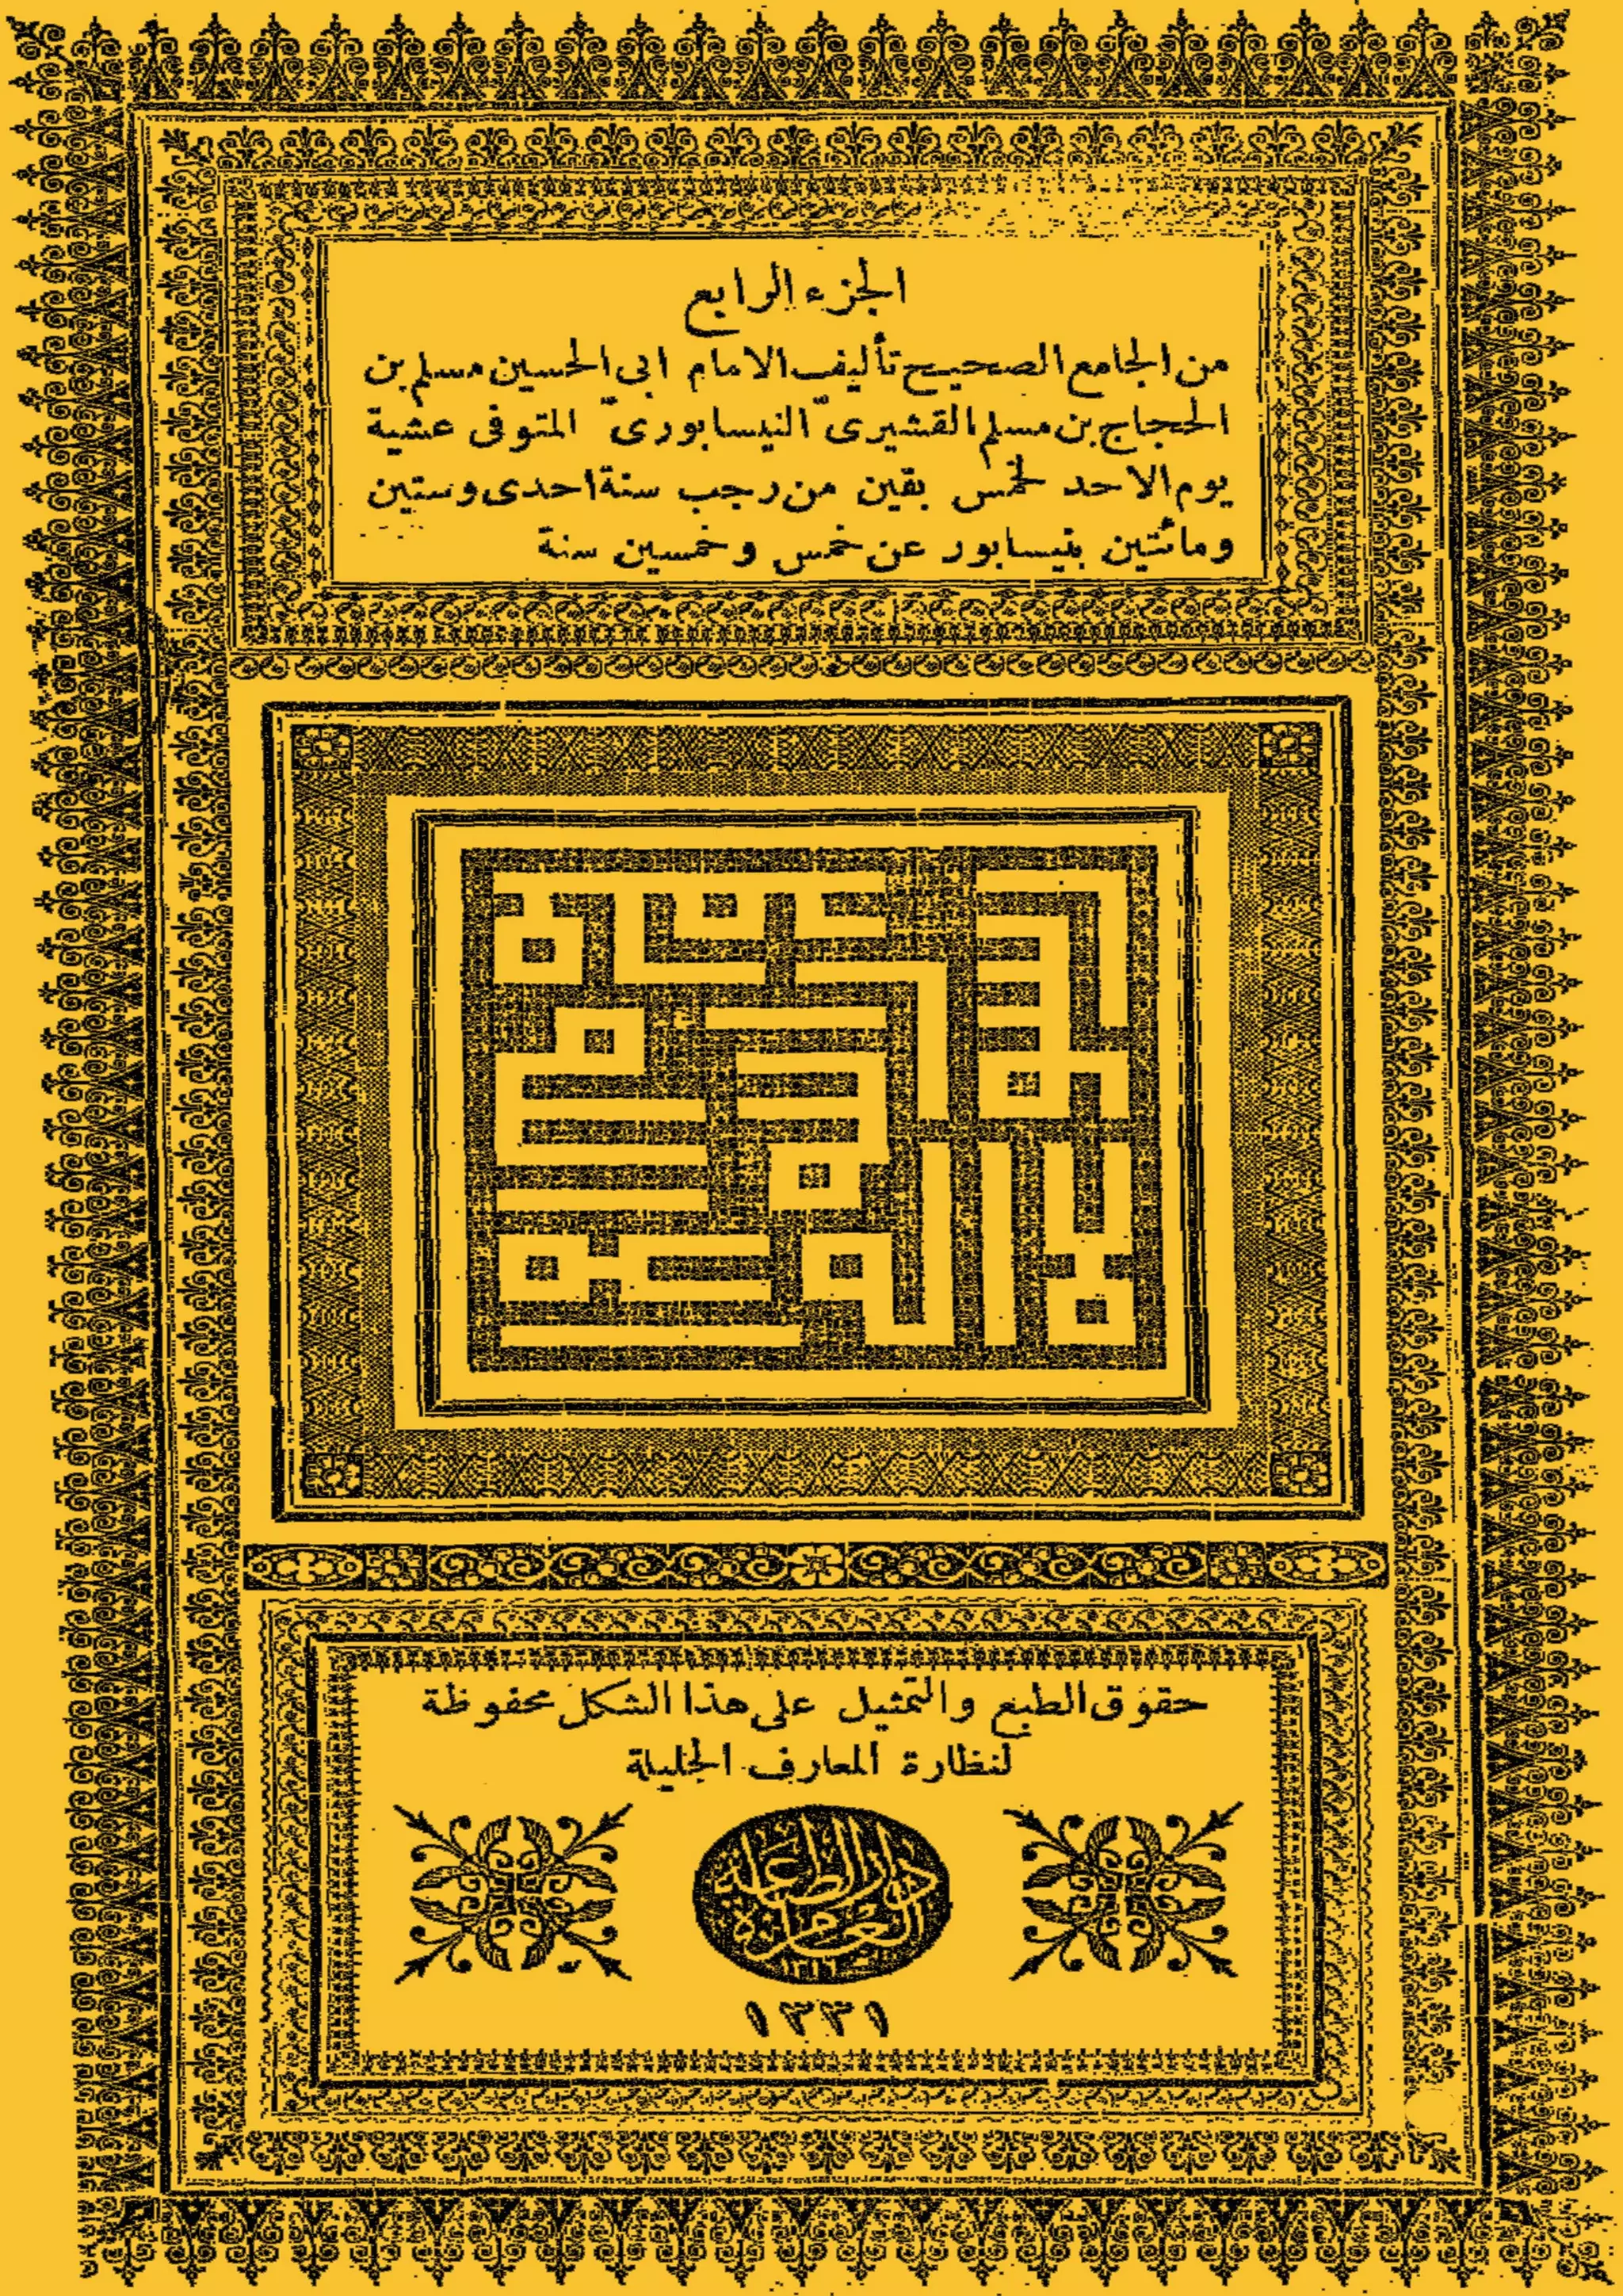 الجزء الرابع
من الجامع الصحيح تأليف الامام ابى الحسين مسلم بن
الحجاج بن مسلم القشيرىّ النيسابورىّ المتوفى عشية
يوم الاحد لخمس بقين من رجب سنة احدى وستين
ومائتين بنيسابور عن خمس وخمسين سنة
حقوق الطبع والتمثيل على هذا الشكل محفوظة
لنظارة المعارف الجليلة
١٣٣١